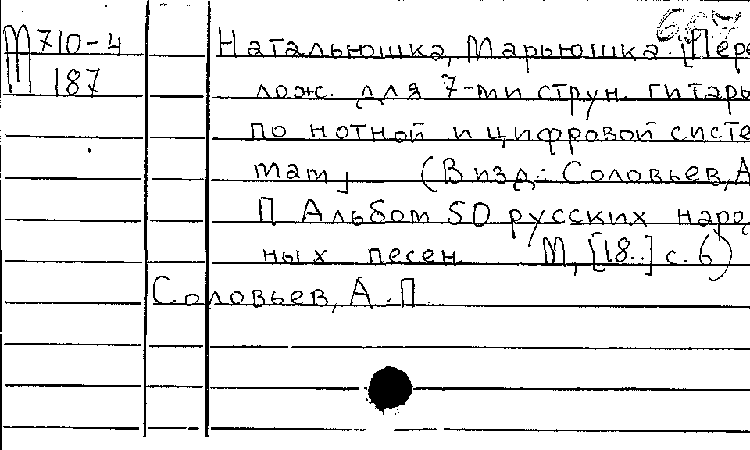 М 710-4
187
Натальюшка, Марьюшка. [Пере
лож. для 7-ми струн. гитары
по нотной и цифровой систе
мам] (В изд.: Соловьев, А
П Альбом 50 русских народ
ных песен М, [18..] с. 6)
Соловьев, А.П